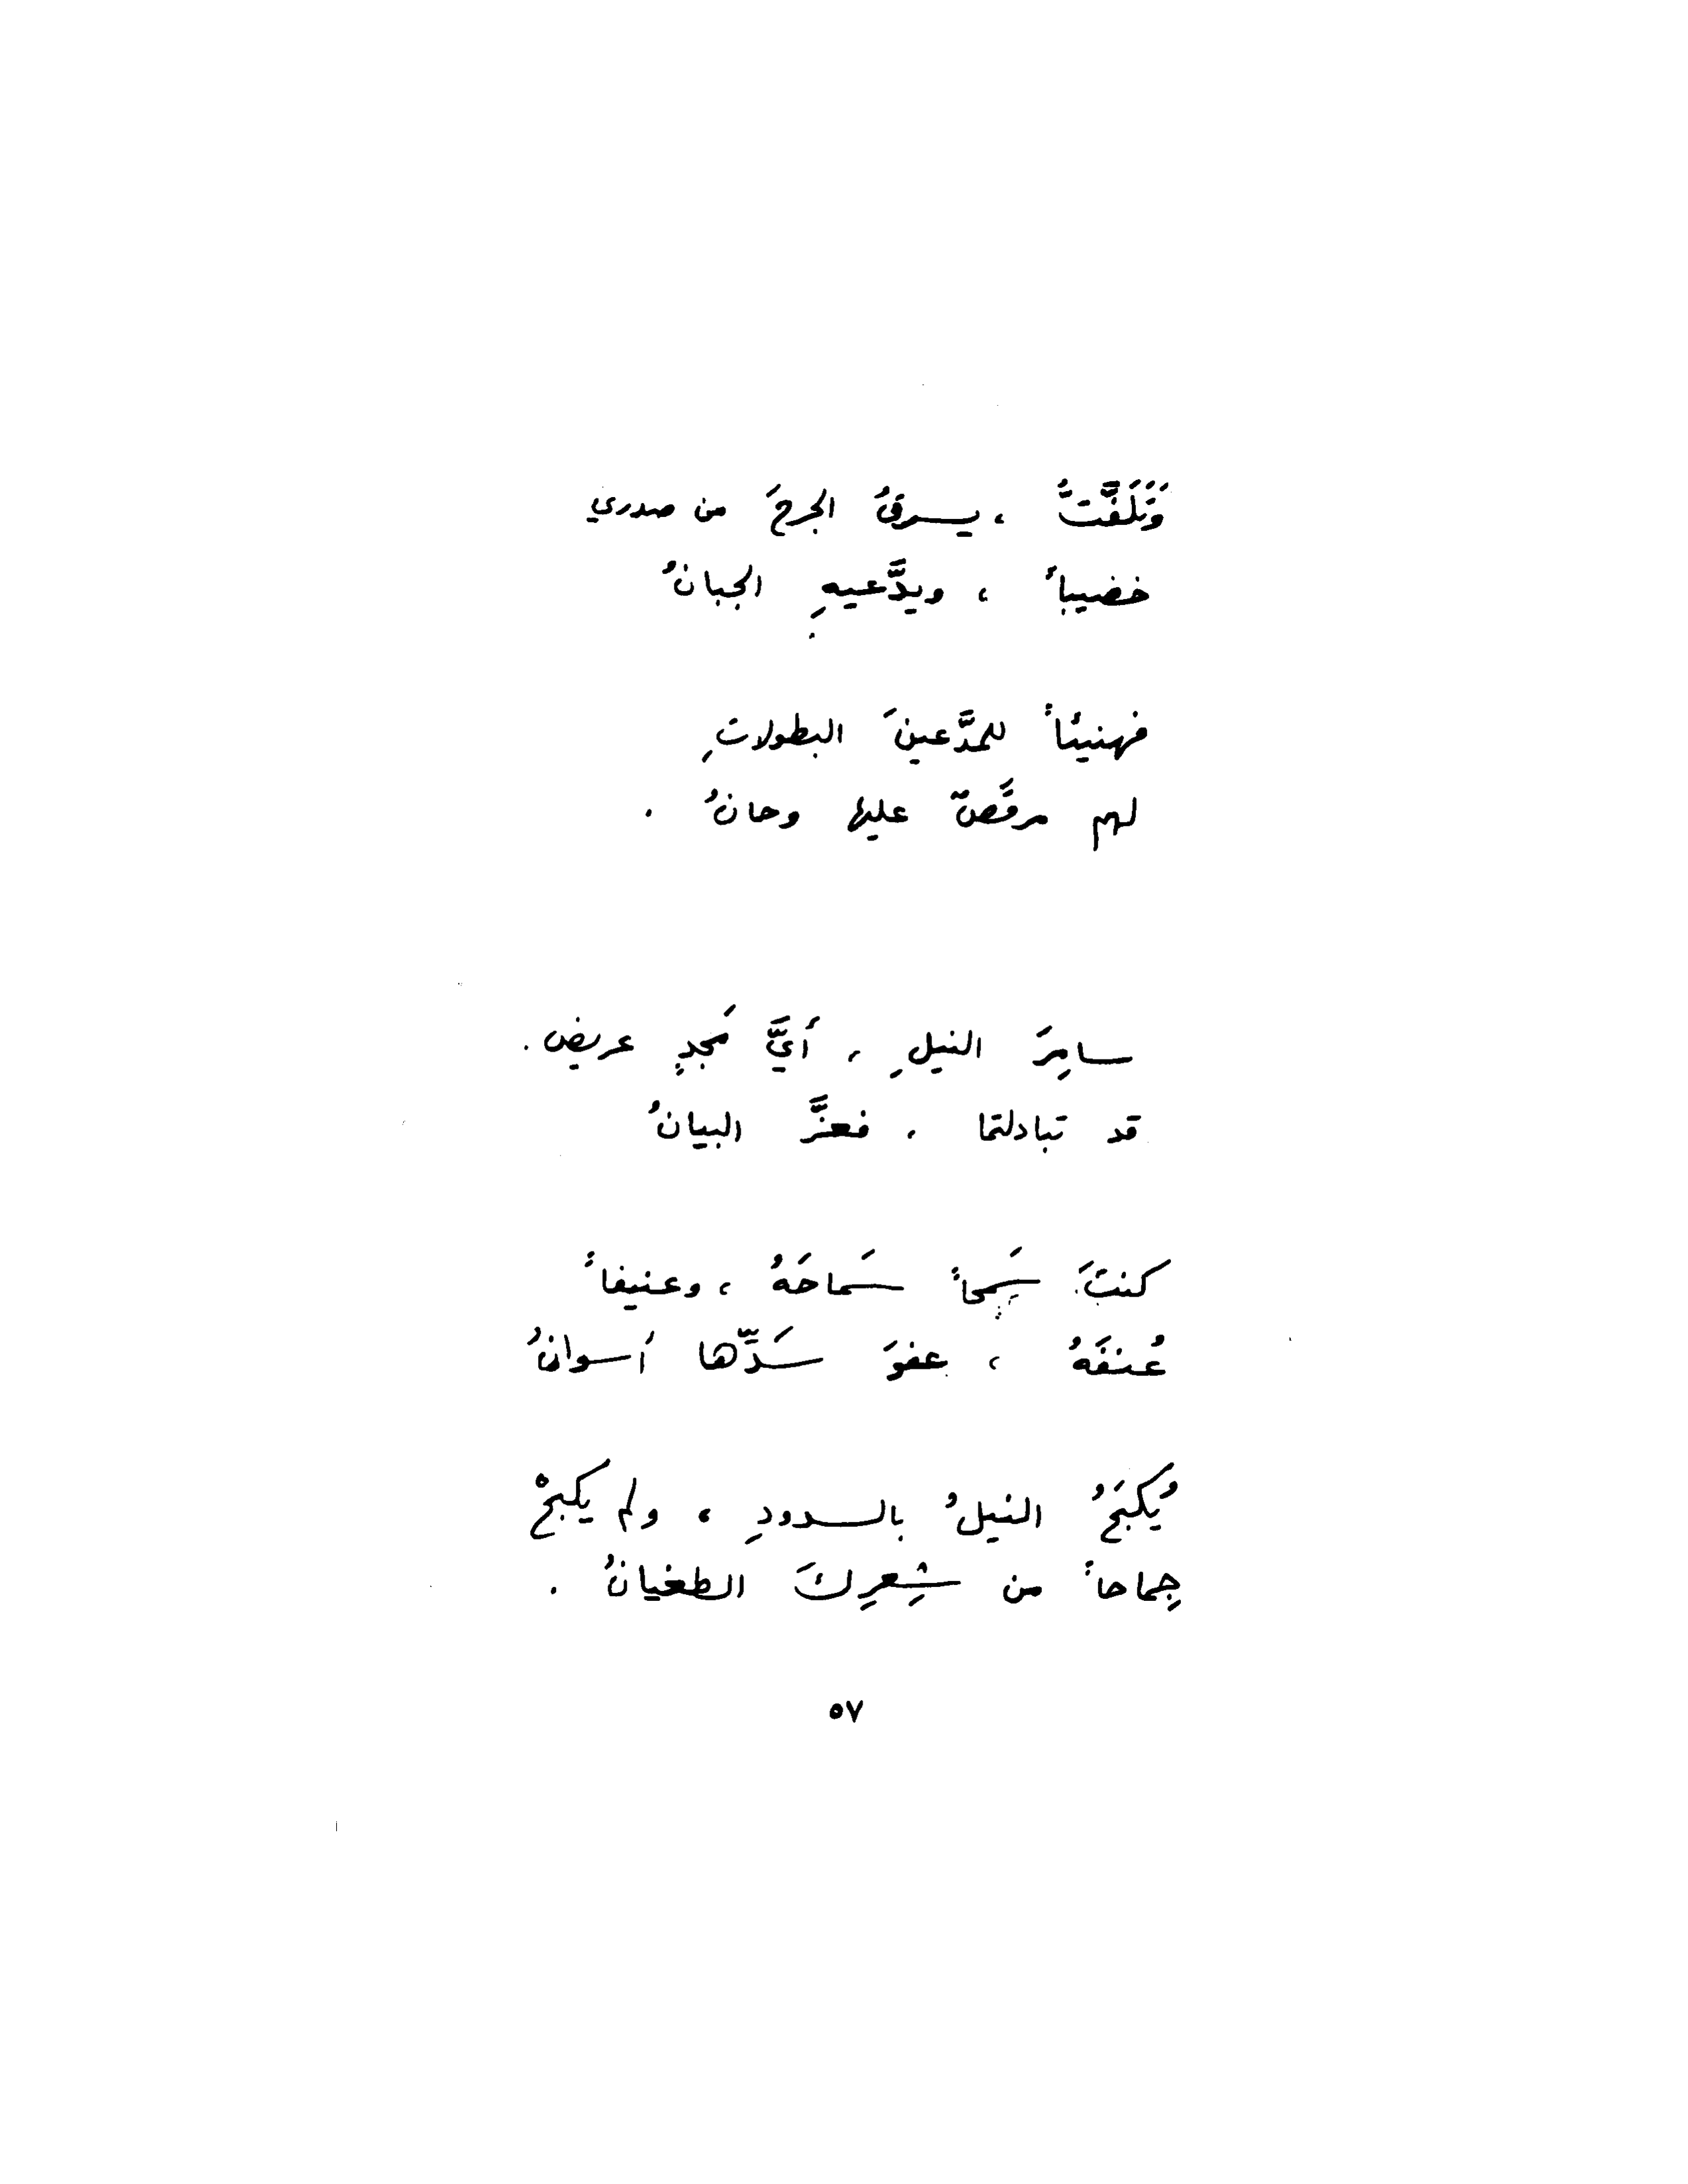 وَتَلَفَّتُّ ، يسرقُ الجرحَ من صدري
خضيباً ، ويدَّعيهِ الجبانُ
فهنيئاً للمدَّعينَ البطولاتِ
لهم مرقَصٌ عليها وحانُ .
سامِرَ النيلِ ، أيَّ مَجدٍ عريض .
قد تبادلتما ، فعزَّ البيانُ
كنتَ سَمحاً سَماحَهُ ، وعنيفاً
عُنفَهُ ، عفوَ سَدِّها أسوانُ
يُكبَحُ النيلُ بالسدودِ ، ولم يكبحْ
جِماحاً من شِعرِكَ الطغيانُ .
٥٧